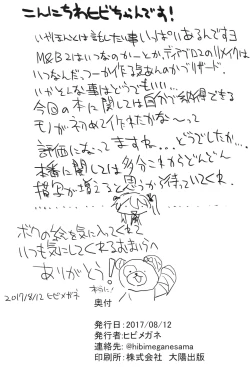 こんにちわヒビちゃんです!
いやほんとは話したい事いっぱいあるんですヨ
M&B2はいつなのかーとか、ディアブロ2のリメイクは
いつなんだっつーか作る気あんのかブリザード
いやそんな事はどうでもいい…
今回の本に関しては自分で納得できる
モノがネ初めて作れたかな〜って
評価になってますね…どうでしたか…
本番に関しては多分これからどんどん
描写が増えると思うから待っていてくれ
ボクの絵を気に入ってくれて
いつも気にしてくれるおまいらへ
ありがとう!
2017/8/12 ヒビメガネ
奥付
発行日:2017/08/12
発行者:ヒビメガネ
連絡先:@hibimeganesama
印刷所:株式会社 大陽出版